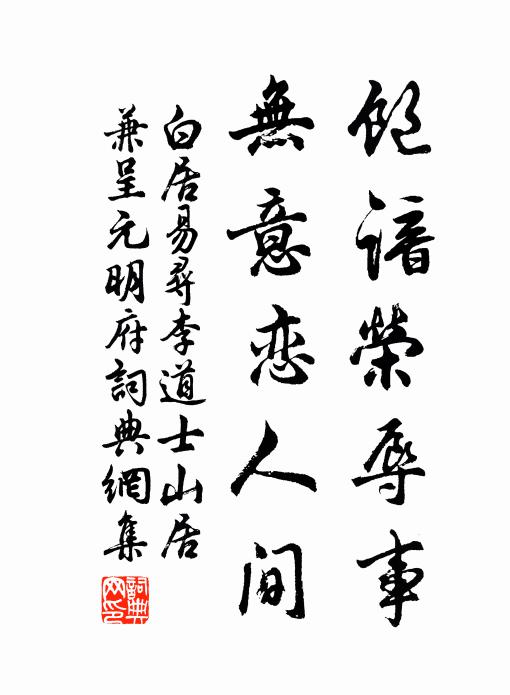 飽諳榮辱事
無意恋人间
白居易尋李道士山居
兼呈元明府詞典網集
詞典网印